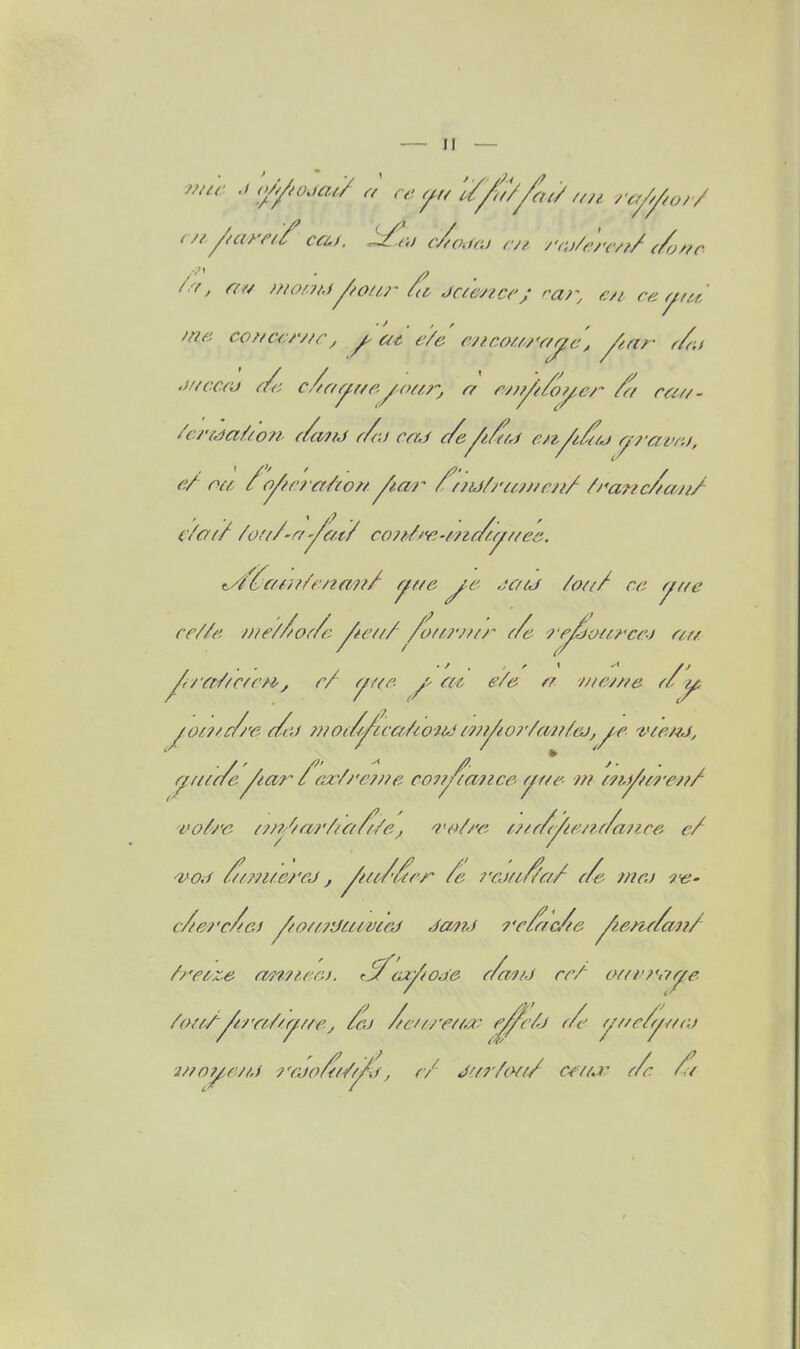 — 11 —
mie s'opposait à ce qu'il fût fait un rapport
en pareil cas. Les choses en restèrent donc
là, au moins pour la science; car, en ce qui
me concerne, j'ai été encouragé, par des
succès de chaque jour, à employer la cau-
térisation dans des cas de plus en plus graves,
et où l'opération par l'instrument tranchant
était tout-à-fait contre-indiquée.
Maintenant que je sais tout ce que
cette méthode peut fournir de ressources au
praticien, et que j'ai été à même d'y
joindre des modifications importantes, je viens,
guidé par l'extrême confiance que m'inspirent
votre impartialité, votre indépendance et
vos lumières, publier le résultat de mes re-
cherches poursuivies sans relâche pendant
treize années. J'expose dans cet ouvrage
tout pratique, les heureux effets de quelques
moyens résolutifs, et surtout ceux de la